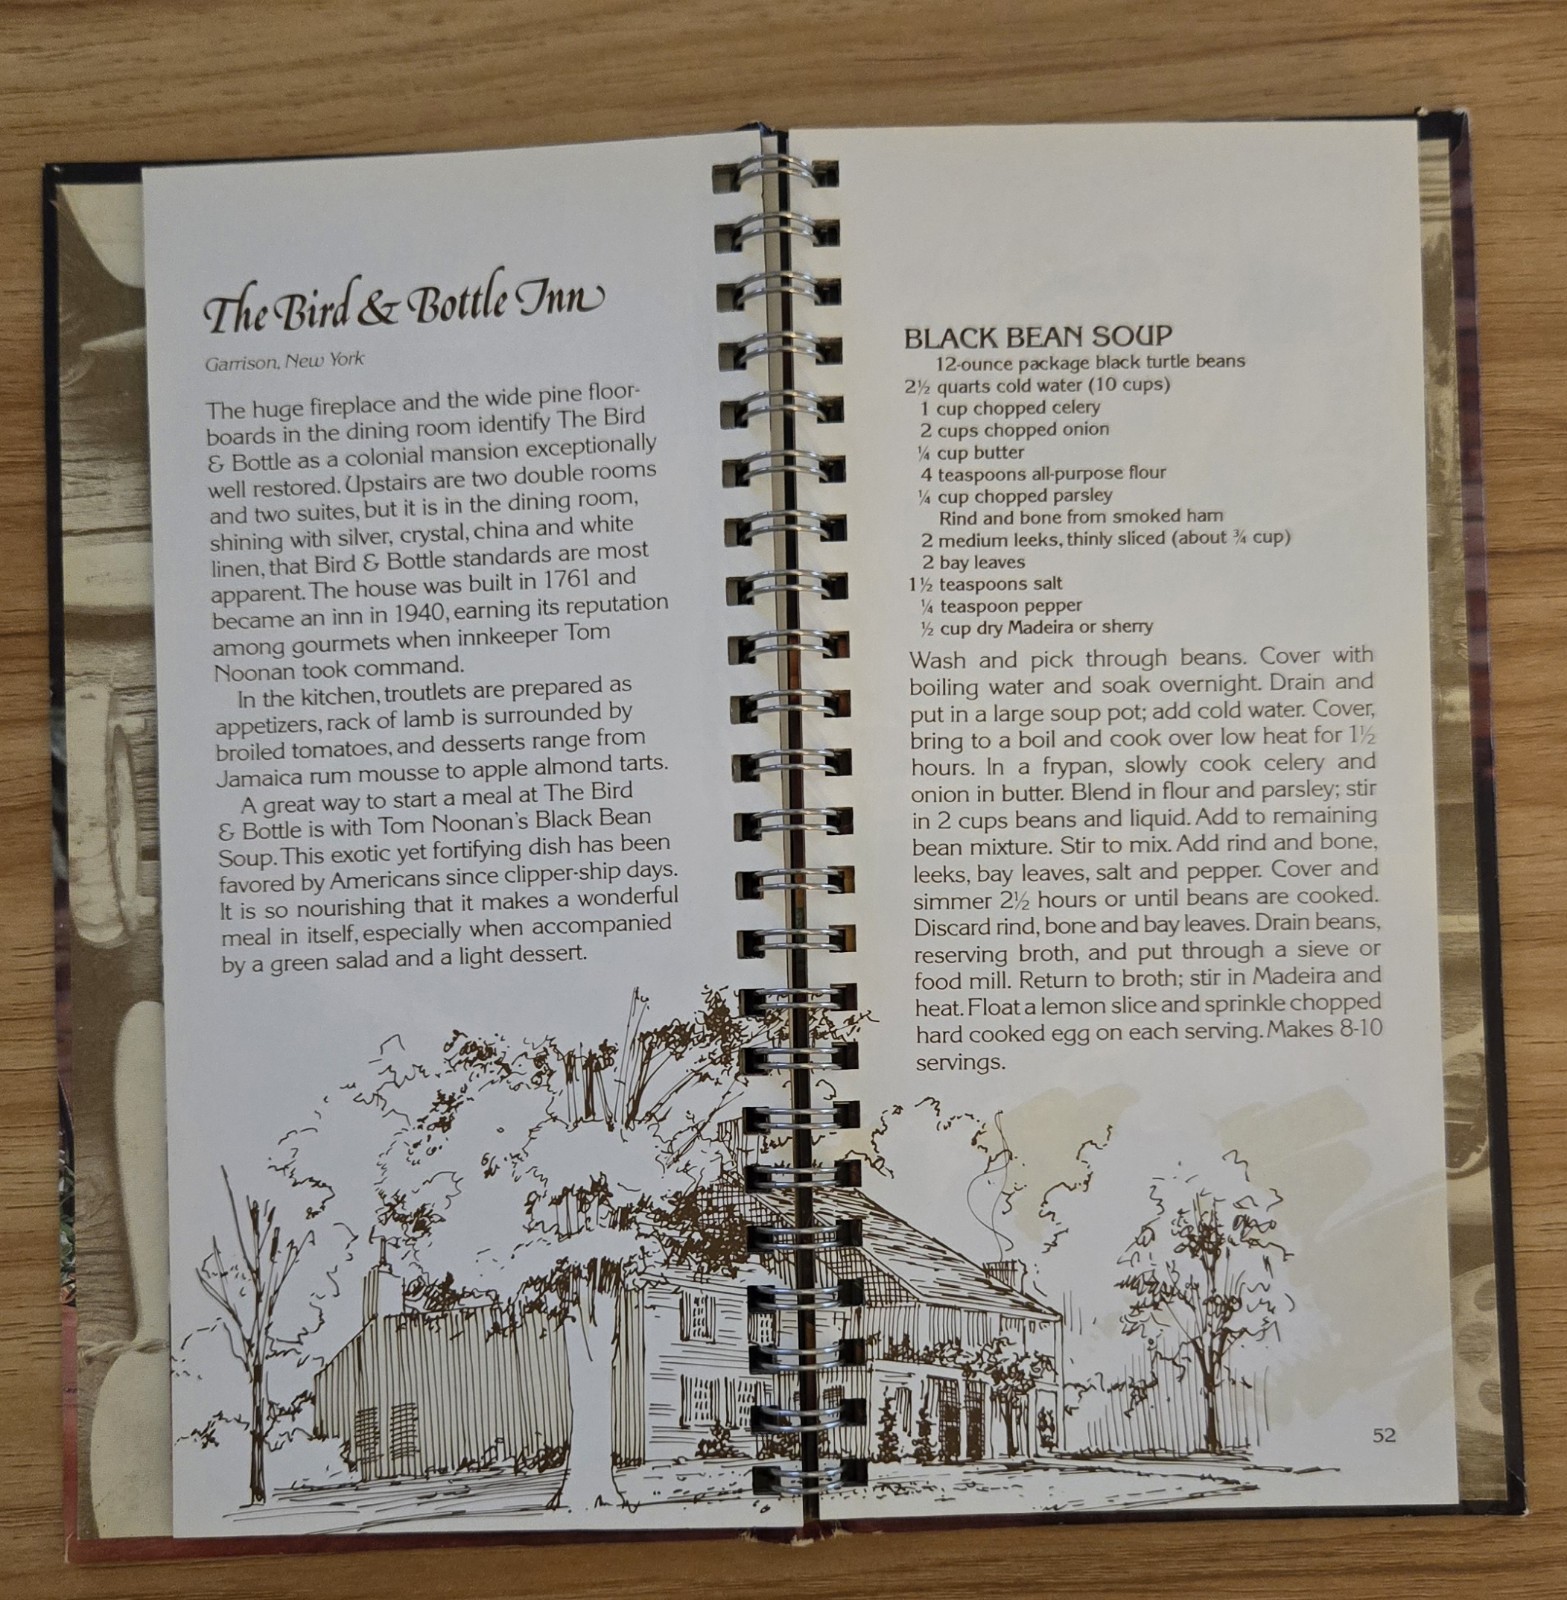 The Bird & Bottle Inn
Garrison, New York
The huge fireplace and the wide pine floor-
boards in the dining room identify The Bird
& Bottle as a colonial mansion exceptionally
well restored. Upstairs are two double rooms
and two suites, but it is in the dining room,
shining with silver, crystal, china and white
linen, that Bird & Bottle standards are most
apparent. The house was built in 1761 and
became an inn in 1940, earning its reputation
among gourmets when innkeeper Tom
Noonan took command.
In the kitchen, troutlets are prepared as
appetizers, rack of lamb is surrounded by
broiled tomatoes, and desserts range from
Jamaica rum mousse to apple almond tarts.
A great way to start a meal at The Bird
& Bottle is with Tom Noonan's Black Bean
Soup. This exotic yet fortifying dish has been
favored by Americans since clipper-ship days.
It is so nourishing that it makes a wonderful
meal in itself, especially when accompanied
by a green salad and a light dessert.
BLACK BEAN SOUP
12-ounce package black turtle beans
2½ quarts cold water (10 cups)
1 cup chopped celery
2 cups chopped onion
¼ cup butter
4 teaspoons all-purpose flour
¼ cup chopped parsley
Rind and bone from smoked ham
2 medium leeks, thinly sliced (about ¾ cup)
2 bay leaves
1½ teaspoons salt
¼ teaspoon pepper
½ cup dry Madeira or sherry
Wash and pick through beans. Cover with
boiling water and soak overnight. Drain and
put in a large soup pot; add cold water. Cover,
bring to a boil and cook over low heat for 1½
hours. In a frypan, slowly cook celery and
onion in butter. Blend in flour and parsley; stir
in 2 cups beans and liquid. Add to remaining
bean mixture. Stir to mix. Add rind and bone,
leeks, bay leaves, salt and pepper. Cover and
simmer 2½ hours or until beans are cooked.
Discard rind, bone and bay leaves. Drain beans,
reserving broth, and put through a sieve or
food mill. Return to broth; stir in Madeira and
heat. Float a lemon slice and sprinkle chopped
hard cooked egg on each serving. Makes 8-10
servings.
52